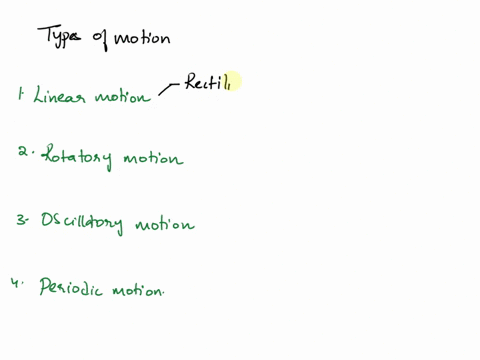 Types of motion
1. Linear motion — Rectil
2. Rotatory motion
3. Oscillatory motion
4. Periodic motion.